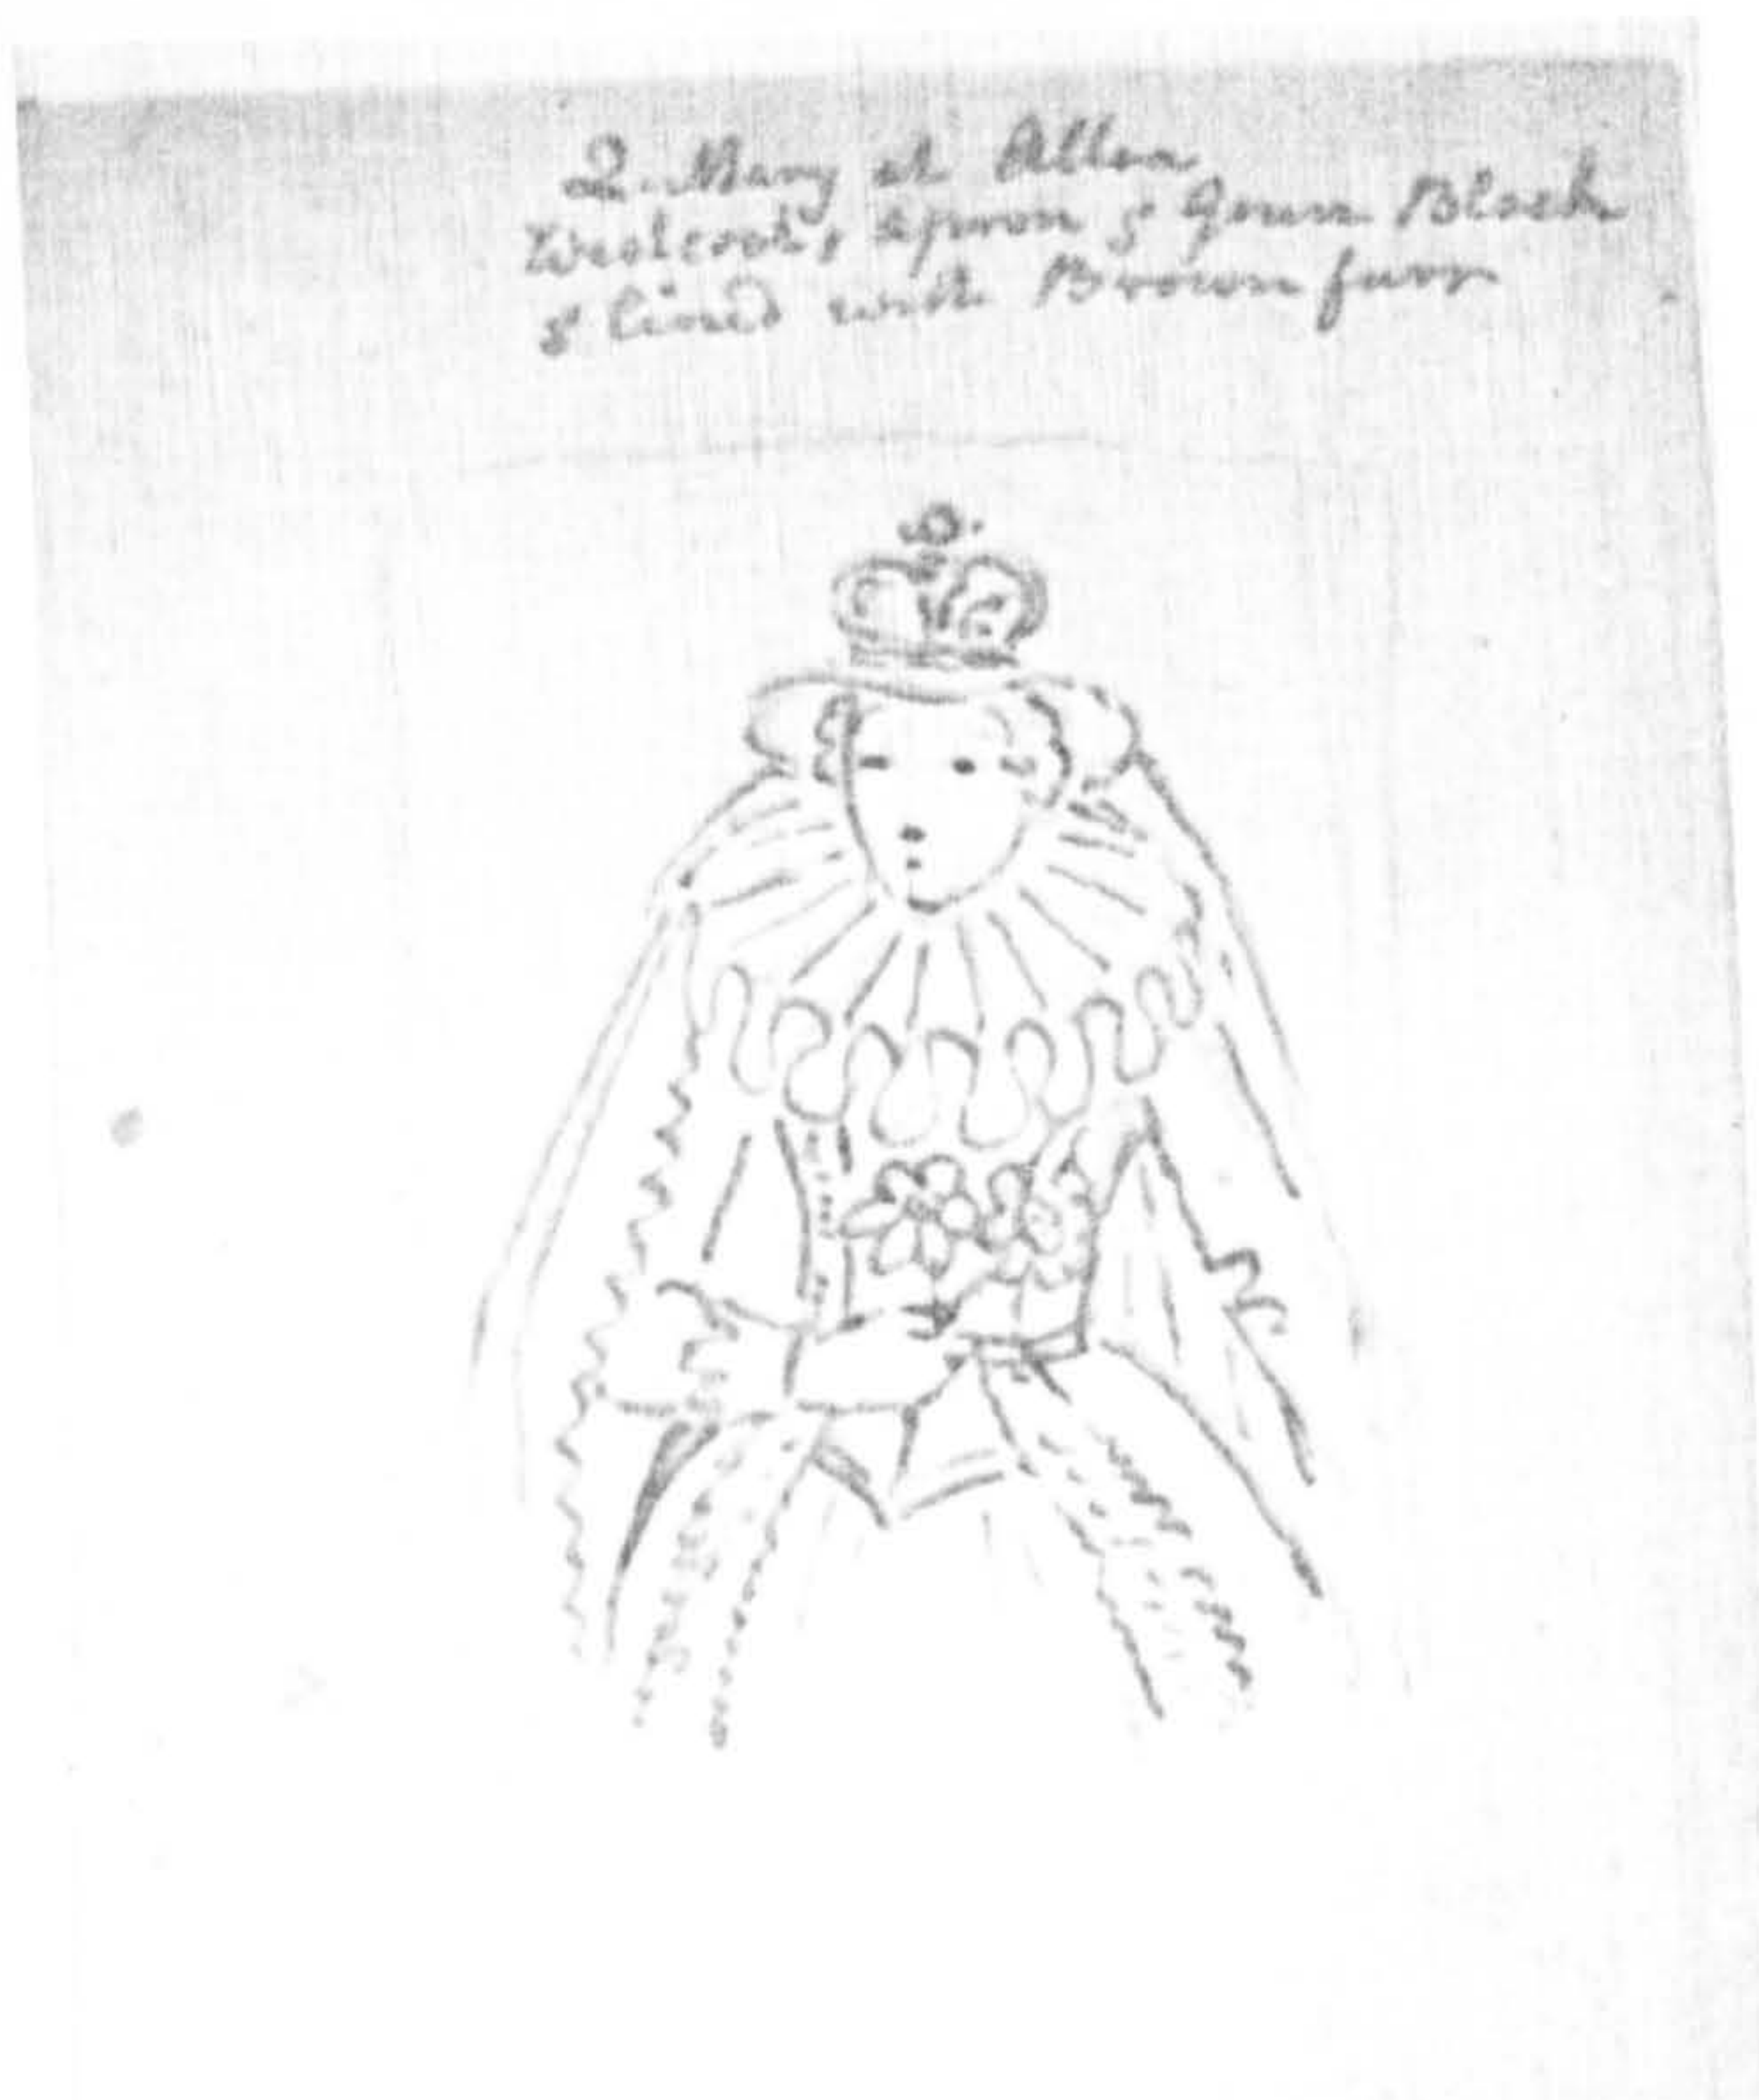 Q. Mary at Alloa
Westcoat, Apron & Gown Black
& lined with Brown furr